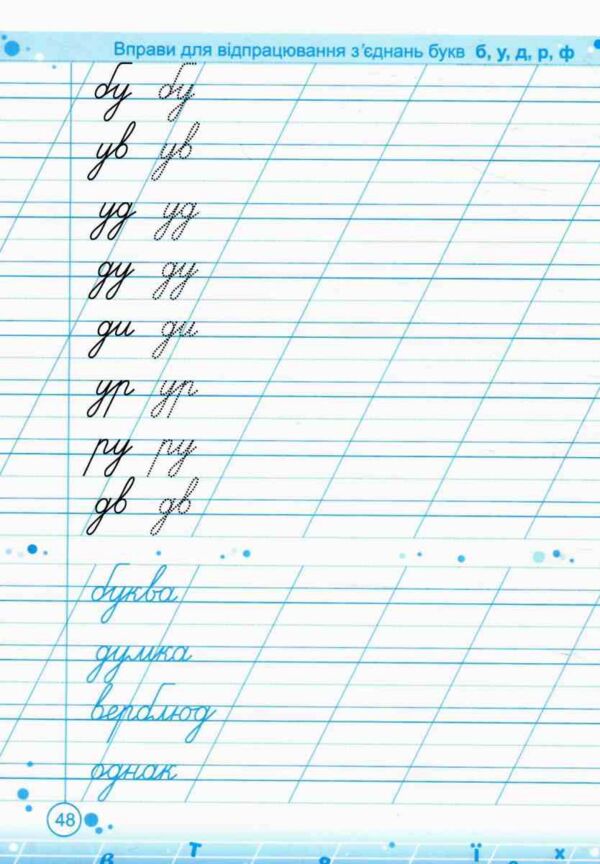 Вправи для відпрацювання з'єднань букв б, у, д, р, ф
бу бу
ув ув
уд уд
ду ду
ди ди
ур ур
ру ру
дв дв
буква
думка
верблюд
однак
48
в т о ї г х